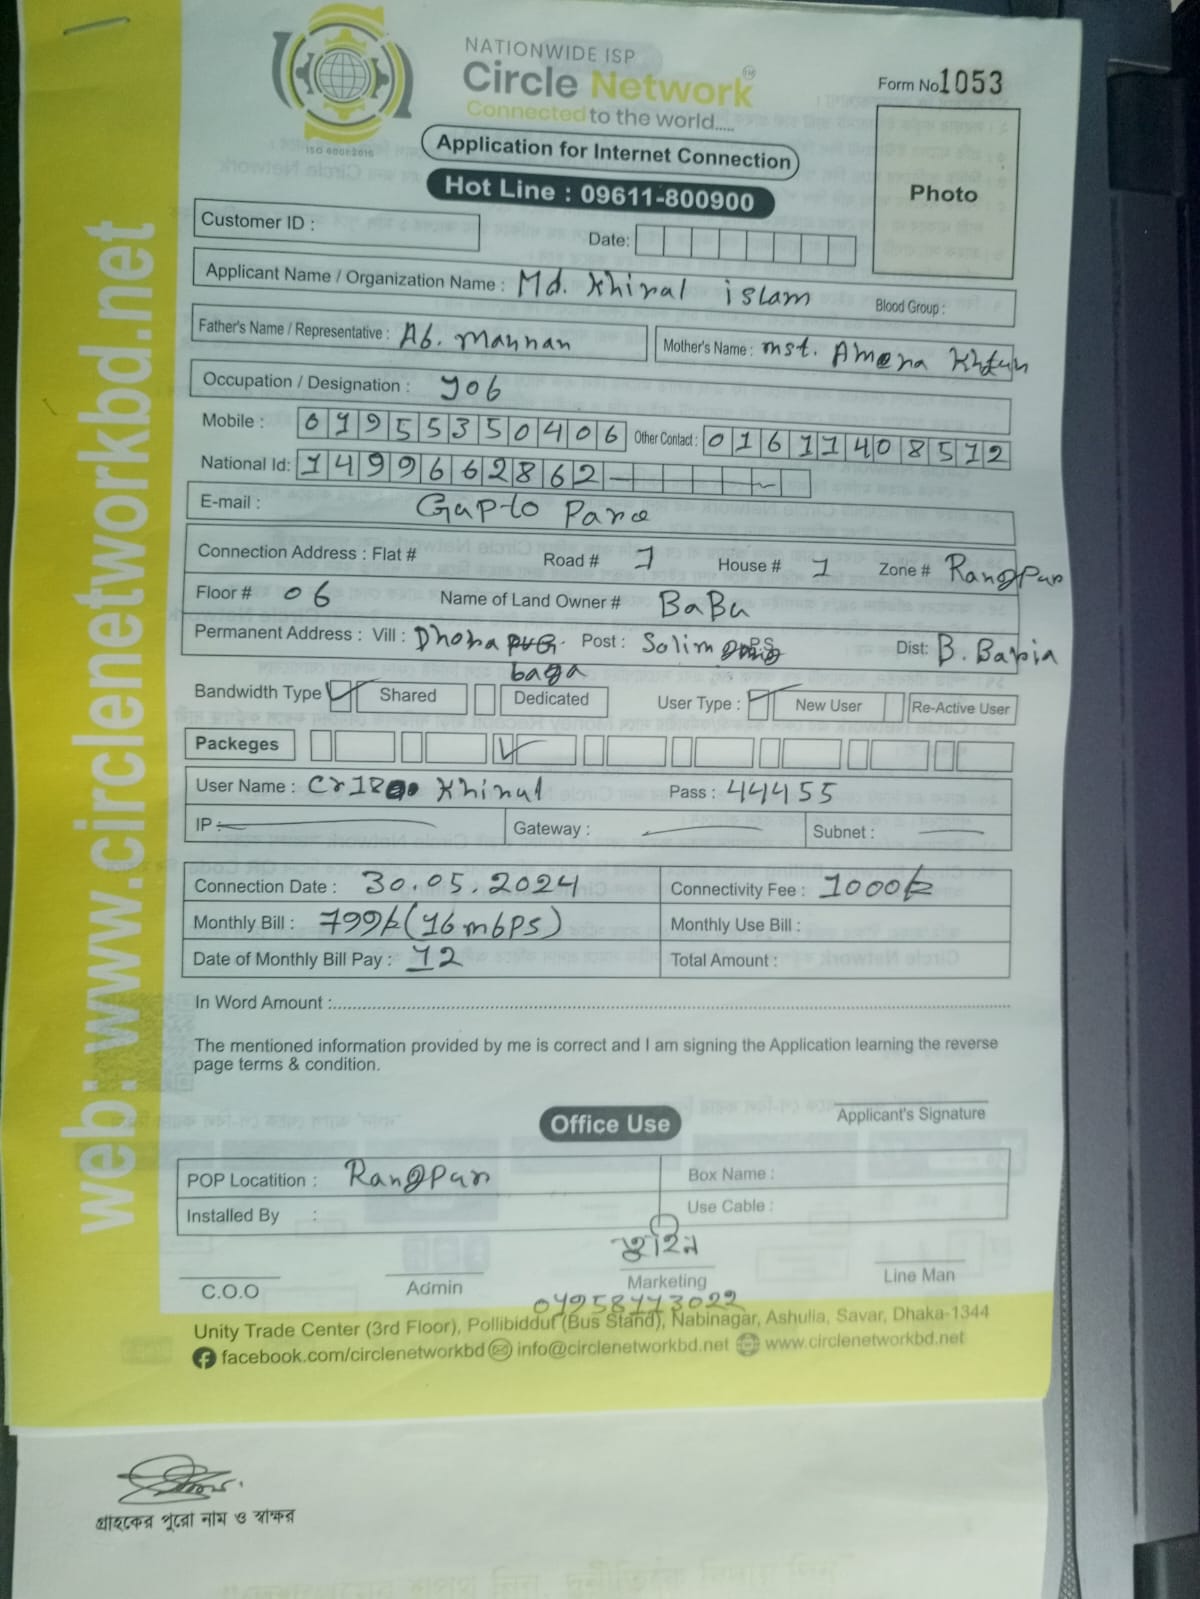 NATIONWIDE ISP
Circle Network
Connected to the world.....
ISO 9001:2015
Form No 1053
Application for Internet Connection
Hot Line : 09611-800900
Photo
Customer ID :
Date:
Applicant Name / Organization Name : Md. Khirul islam Blood Group :
Father's Name / Representative : Ab. Mannan Mother's Name : mst. Amena Khtun
Occupation / Designation : Job
Mobile : 01955350406 Other Contact : 01611408512
National Id: 1499662862
E-mail : Gapto Para
Connection Address : Flat # Road # 1 House # 1 Zone # Rangpur
Floor # 06 Name of Land Owner # BaBu
Permanent Address : Vill : Dhona Post : Solim Dist: B. Baria
baga
Bandwidth Type Shared Dedicated User Type : New User Re-Active User
Packeges
User Name : Khirul Pass : 44455
IP : Gateway : Subnet :
Connection Date : 30.05.2024 Connectivity Fee : 1000/-
Monthly Bill : 799/- (16 mbps) Monthly Use Bill :
Date of Monthly Bill Pay : 12 Total Amount :
In Word Amount :
The mentioned information provided by me is correct and I am signing the Application learning the reverse
page terms & condition.
Applicant's Signature
Office Use
POP Locatition : Rangpur Box Name :
Installed By : Use Cable :
C.O.O Admin Marketing Line Man
Unity Trade Center (3rd Floor), Pollibiddut (Bus Stand), Nabinagar, Ashulia, Savar, Dhaka-1344
facebook.com/circlenetworkbd info@circlenetworkbd.net www.circlenetworkbd.net
web: www.circlenetworkbd.net
গ্রাহকের পুরো নাম ও স্বাক্ষর